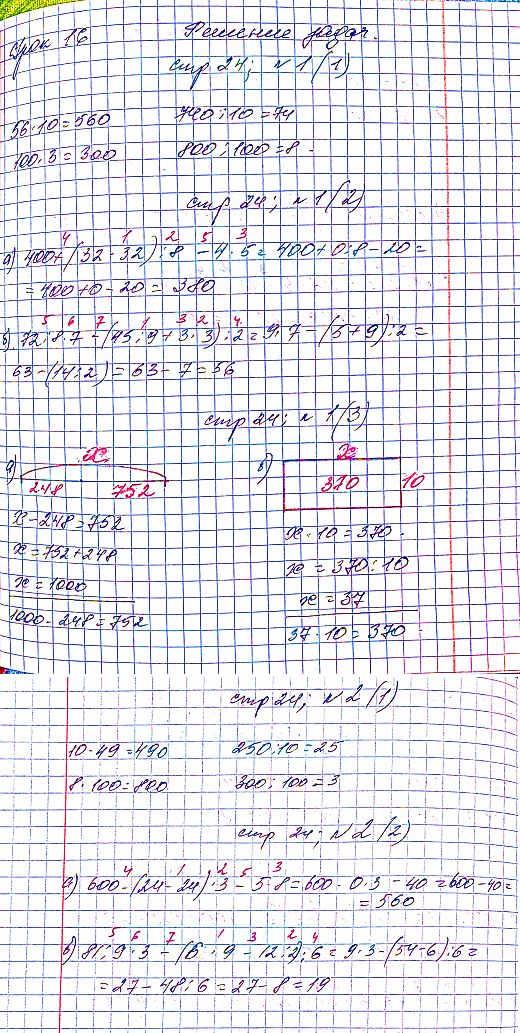 Урок 16 Решение задач.
стр 24; №1 (1)
56·10=560 740:10=74
100·3=300 800:100=8
стр 24; №1 (2)
4 1 2 5 3
а) 400+(32-32):8-4·5=400+0:8-20=
=400+0-20=380
5 6 7 1 3 2 4
в) 72:8·7-(45:9+3·3):2=9·7-(5+9):2=
63-(14:2)=63-7=56
стр 24; №1 (3)
а) x в) x
248 752 370 10
x-248=752 x·10=370
x=752+248 x=370:10
x=1000 x=37
1000-248=752 37·10=370
стр 24; №2 (1)
10·49=490 250:10=25
8·100=800 300:100=3
стр 24; №2 (2)
4 1 2 5 3
а) 600-(24-24):3-5·8=600-0:3-40=600-40=
=560
5 6 7 1 3 2 4
в) 81:9·3-(6·9-12:2):6=9·3-(54-6):6=
=27-48:6=27-8=19